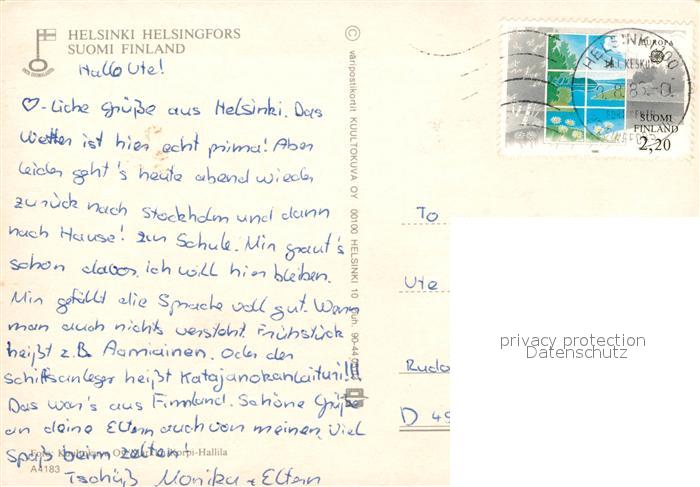 HELSINKI HELSINGFORS
SUOMI FINLAND
Hallo Ute!
♡-liche Grüße aus Helsinki. Das
Wetter ist hier echt prima! Aber
leider geht's heute abend wieder
zurück nach Stockholm und dann
nach Hause! Zur Schule. Mir graut's
schon davor. ich will hier bleiben.
Mir gefällt die Sprache voll gut. Wenn
man auch nichts versteht. Frühstück
heißt z.B. Aamiainen. Oder der
Schiffsanleger heißt Katajanokanlaituri!!!
Das war's aus Finnland. Schöne Grüße
an deine Eltern auch von meinen. Viel
Spaß beim zelten!
Tschüß Monika + Eltern
A4183
© väripostikortit KUULTOKUVA OY 00100 HELSINKI 10 Puh. 90-44
EUROPA
HELSINKI
SUOMI
FINLAND
2,20
To
Ute
D
privacy protection
Datenschutz